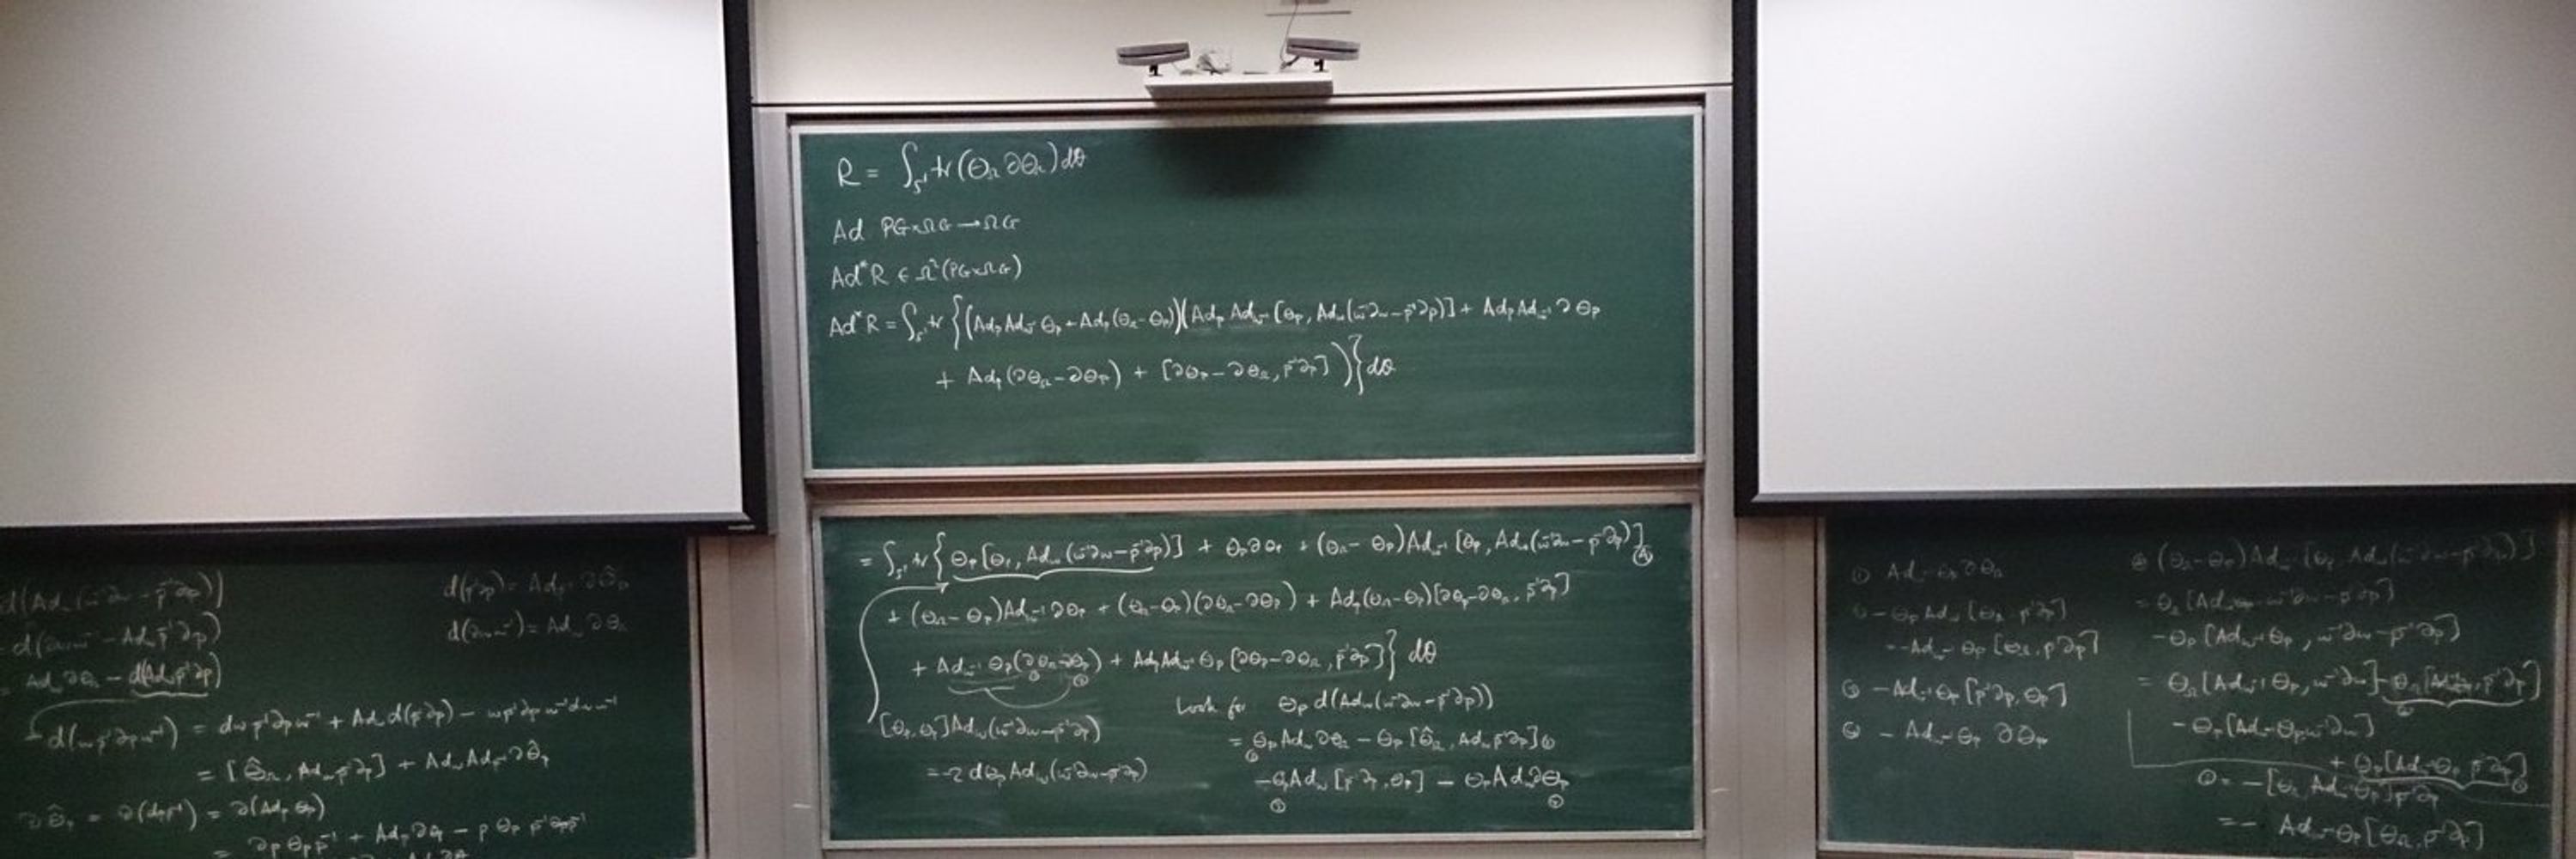 R = ∫_{S¹} tr(Θ_Ω ∂Θ_Ω) dθ
Ad PG×ΩG → ΩG
Ad*R ∈ Ω²(PG×ΩG)
Ad*R = ∫_{S¹} tr {(Ad_p Ad_{ω⁻¹} Θ_p + Ad_p(Θ_Ω - Θ_p))(Ad_p Ad_{ω⁻¹} [Θ_p, Ad_ω(ω⁻¹∂ω - p⁻¹∂p)] + Ad_p Ad_{ω⁻¹} ∂Θ_p
+ Ad_p(∂Θ_Ω - ∂Θ_p) + [∂Θ_p - ∂Θ_Ω, p⁻¹∂p])} dθ
= ∫_{S¹} tr {Θ_p [Θ_p, Ad_ω(ω⁻¹∂ω - p⁻¹∂p)] + Θ_p ∂Θ_p + (Θ_Ω - Θ_p) Ad_{ω⁻¹} [Θ_p, Ad_ω(ω⁻¹∂ω - p⁻¹∂p)] ④
+ (Θ_Ω - Θ_p) Ad_{ω⁻¹} ∂Θ_p + (Θ_Ω - Θ_p)(∂Θ_Ω - ∂Θ_p) + Ad_p(Θ_Ω - Θ_p)[∂Θ_p - ∂Θ_Ω, p⁻¹∂p]
+ Ad_{ω⁻¹} Θ_p(∂Θ_Ω - ∂Θ_p) + Ad_p Ad_{ω⁻¹} Θ_p [∂Θ_p - ∂Θ_Ω, p⁻¹∂p]} dθ
[Θ_p, Θ_p] Ad_ω(ω⁻¹∂ω - p⁻¹∂p)
= -2 dΘ_p Ad_ω(ω⁻¹∂ω - p⁻¹∂p)
Look for Θ_p d(Ad_ω(ω⁻¹∂ω - p⁻¹∂p))
= Θ_p Ad_ω ∂Θ_Ω - Θ_p [Θ̂_Ω, Ad_ω p⁻¹∂p]
- Θ_p Ad_ω [p⁻¹∂p, Θ_p] - Θ_p Ad_ω ∂Θ_p
d(Ad_ω(ω⁻¹∂ω - p⁻¹∂p))
= d(∂ωω⁻¹ - Ad_ω p⁻¹∂p)
= Ad_ω ∂Θ_Ω - d(Ad_ω p⁻¹∂p)
d(ωp⁻¹∂pω⁻¹) = dω p⁻¹∂p ω⁻¹ + Ad_ω d(p⁻¹∂p) - ωp⁻¹∂p ω⁻¹dω ω⁻¹
= [Θ̂_Ω, Ad_ω p⁻¹∂p] + Ad_ω Ad_{p⁻¹} ∂Θ̂_p
∂Θ̂_p = ∂(dp p⁻¹) = ∂(Ad_p Θ_p)
= ∂p Θ_p p⁻¹ + Ad_p ∂Θ_p - p Θ_p p⁻¹∂p p⁻¹
d(p⁻¹∂p) = Ad_{p⁻¹} ∂Θ̂_p
d(∂ωω⁻¹) = Ad_ω ∂Θ_Ω
- Ad_{ω⁻¹} Θ_p [Θ_Ω, p⁻¹∂p]
③ - Ad_{ω⁻¹} Θ_p [p⁻¹∂p, Θ_p]
- Ad_{ω⁻¹} Θ_p ∂Θ_p
④ (Θ_Ω - Θ_p) Ad_{ω⁻¹} [Θ_p, Ad_ω(ω⁻¹∂ω - p⁻¹∂p)]
= Θ_Ω [Ad_{ω⁻¹} Θ_p, ω⁻¹∂ω - p⁻¹∂p]
- Θ_p [Ad_{ω⁻¹} Θ_p, ω⁻¹∂ω - p⁻¹∂p]
= Θ_Ω [Ad_{ω⁻¹} Θ_p, ω⁻¹∂ω] - Θ_Ω [Ad_{ω⁻¹} Θ_p, p⁻¹∂p]
- Θ_p [Ad_{ω⁻¹} Θ_p, ω⁻¹∂ω]
+ Θ_p [Ad_{ω⁻¹} Θ_p, p⁻¹∂p]
= - [Θ_Ω, Ad_{ω⁻¹} Θ_p] p⁻¹∂p
= - Ad_{ω⁻¹} Θ_p [Θ_Ω, p⁻¹∂p]